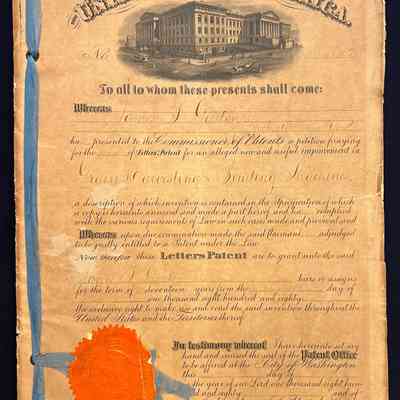 No.
To all to whom these presents shall come:
Whereas
ha presented to the Commissioner of Patents a petition praying
for the of Letters Patent for an alleged new and useful improvement in
Grain Harvesting Binding Machine
a description of which invention is contained in the Specification of which
a copy is hereunto annexed and made a part hereof and ha complied
with the various requirements of Law in such cases made and provided and
Whereas upon due examination made the said Claimant adjudged
to be justly entitled to a Patent under the Law
Now therefore these Letters Patent are to grant unto the said
heirs or assigns
for the term of seventeen years from the day of
one thousand eight hundred and eighty
the exclusive right to make use and vend the said invention throughout the
United States and the Territories thereof
In testimony whereof I have hereunto set my
hand and caused the seal of the Patent Office
to be affixed at the City of Washington
this day of
the year of our Lord one thousand eight hun
and eighty and of